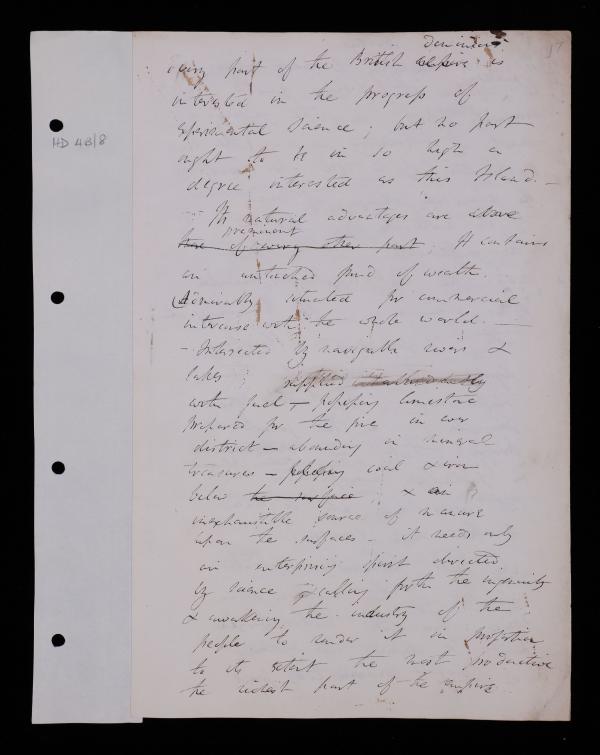 17
dominions
every part of the British empire is
interested in the progress of
experimental Science; but no part
ought to be in so high a
degree interested as this Island. —
HD 4B/8
— Its natural advantages are above
preeminent
those of every other part. It contains
an untouched fund of wealth.
Admirably situated for commercial
intercourse with the whole world. —
- Intersected by navigable rivers &
lakes; supplied
with fuel, — possessing limestone
prepared for the fire in every
district — abounding in mineral
treasures — possessing coal & iron
below the surface; & an
inexhaustible source of manure
upon the surface - it needs only
an enterprising spirit directed
by science & calling forth the ingenuity
& awakening the industry of the
people to render it in proportion
to its extent the most productive
the richest part of the empire